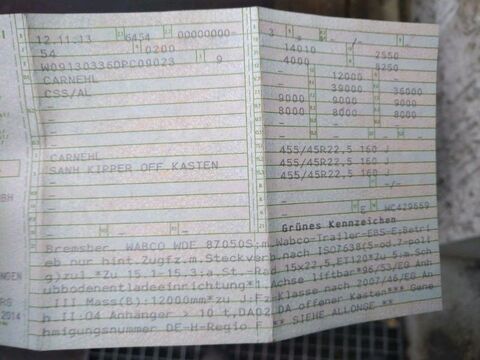 12.11.13 6454 00000000-
54 0200
W09130336DPC09023 9
CARNEHL
CSS/AL
-
-
CARNEHL
SANH KIPPER OFF.KASTEN
-
3
14010 2550
4000 8250
- 12000 -
- 39000 36000
9000 9000 9000
8000 8000 8000
- - -
455/45R22,5 160 J
455/45R22,5 160 J
455/45R22,5 160 J
-/-
- E WC429659
Grünes Kennzeichen
Bremsber. WABCO WDF 87050S;m.Wabco-Trailer-EBS-E;Betri
eb nur hint.Zugfz.m.Steckverb.nach ISO7638(5-od.7-poli
g)zul.*Zu 15.1-15.3:a.St.-Rad 15x22,5,ET120*Zu 5:a.Sch
ubbodenentladeeinrichtung*1.Achse liftbar*96/53/EG Anh
III Mass(B):12000mm*zu J:Fz-Klasse nach 2007/46/EG An
h II:O4 Anhänger > 10 t,DA02.DA offener Kasten*** Gene
hmigungsnummer DE-H-Regio F ** SIEHE ALLONGE **
BH
NGEN
RS
2014